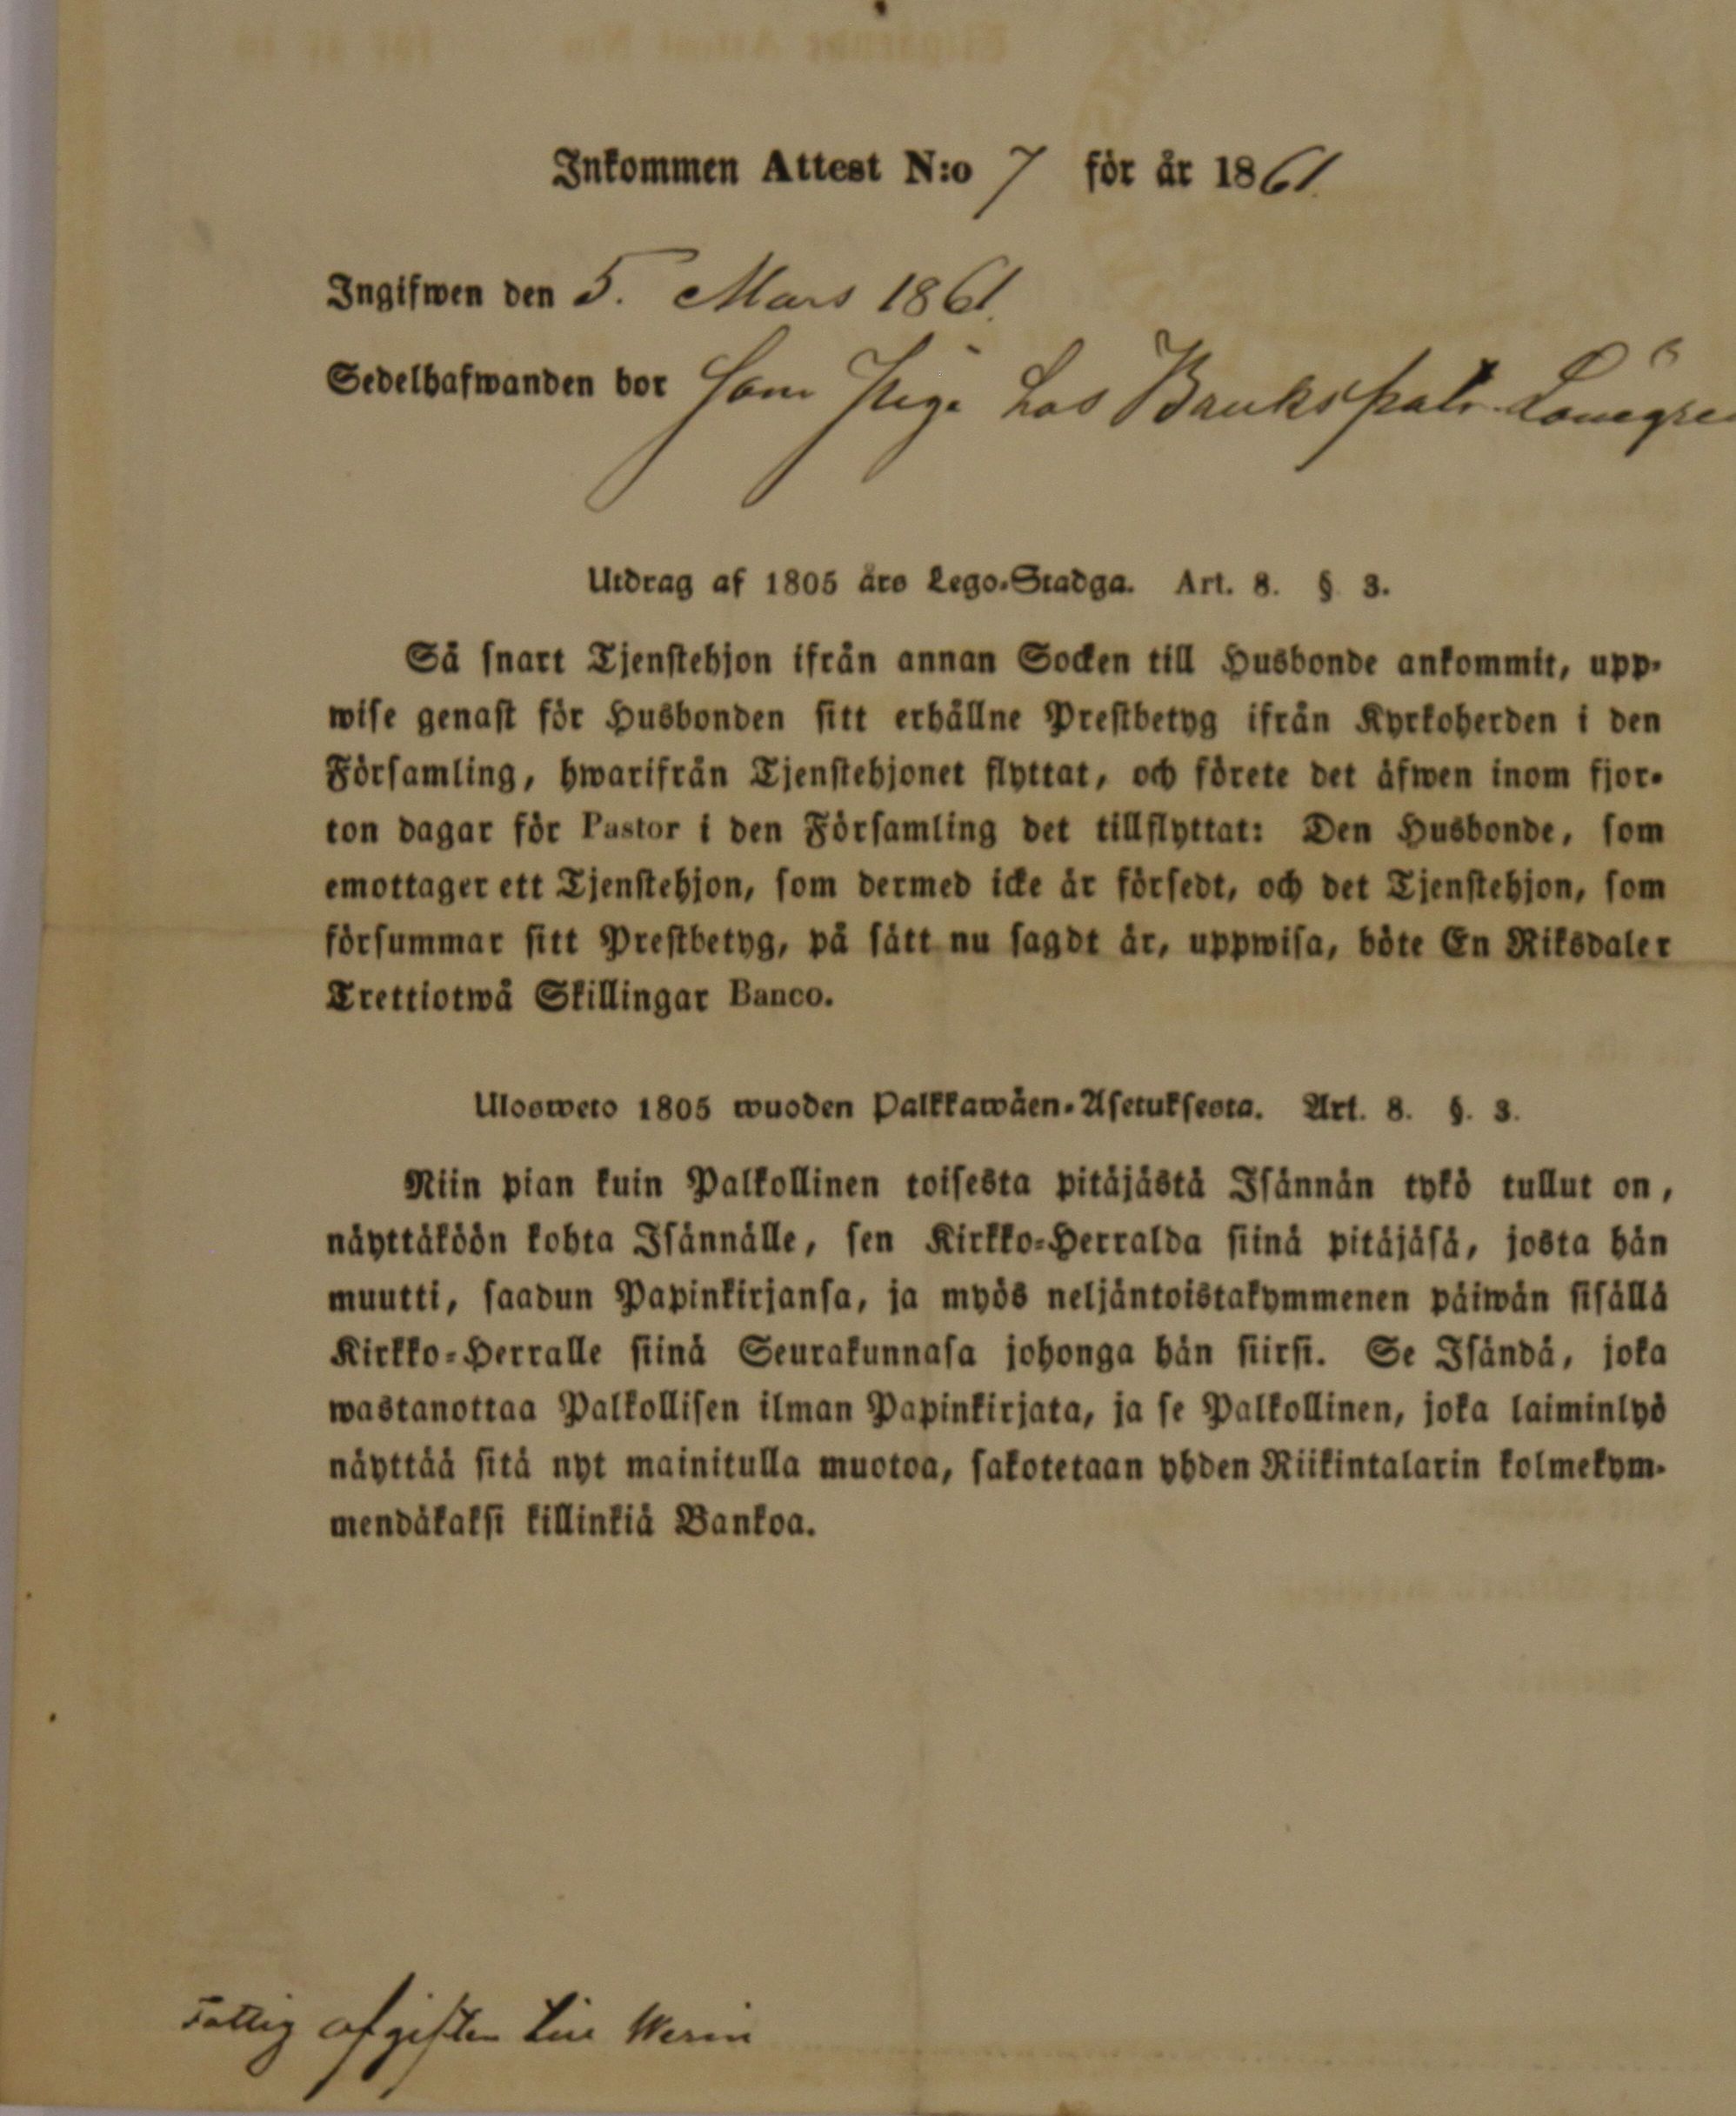 Inkommen Attest N:o 7 för år 1861.
Ingifwen den 5. Mars 1861.
Sedelhafwanden bor som Piga hos Brukspatr.
Utdrag af 1805 års Lego-Stadga. Art. 8. § 3.
Så snart Tjenstehjon ifrån annan Socken till Husbonde ankommit, upp-
wise genast för Husbonden sitt erhållne Prestbetyg ifrån Kyrkoherden i den
Församling, hwarifrån Tjenstehjonet flyttat, och förete det äfwen inom fjor-
ton dagar för Pastor i den Församling det tillflyttat: Den Husbonde, som
emottager ett Tjenstehjon, som dermed icke är försedt, och det Tjenstehjon, som
försummar sitt Prestbetyg, på sätt nu sagdt är, uppwisa, böte En Riksdaler
Trettiotwå Skillingar Banco.
Ulosweto 1805 wuoden Palkkawäen-Asetuksesta. Art. 8. §. 3.
Niin pian kuin Palkollinen toisesta pitäjästä Isännän tykö tullut on,
näyttäköön kohta Isännälle, sen Kirkko-Herralda siinä pitäjäsä, josta hän
muutti, saadun Papinkirjansa, ja myös neljäntoistakymmenen päiwän sisällä
Kirkko-Herralle siinä Seurakunnasa johonga hän siirsi. Se Isändä, joka
wastanottaa Palkollisen ilman Papinkirjata, ja se Palkollinen, joka laiminlyö
näyttää sitä nyt mainitulla muotoa, sakotetaan yhden Riikintalarin kolmekym-
mendäkaksi killinkiä Bankoa.
Fattig afgiften